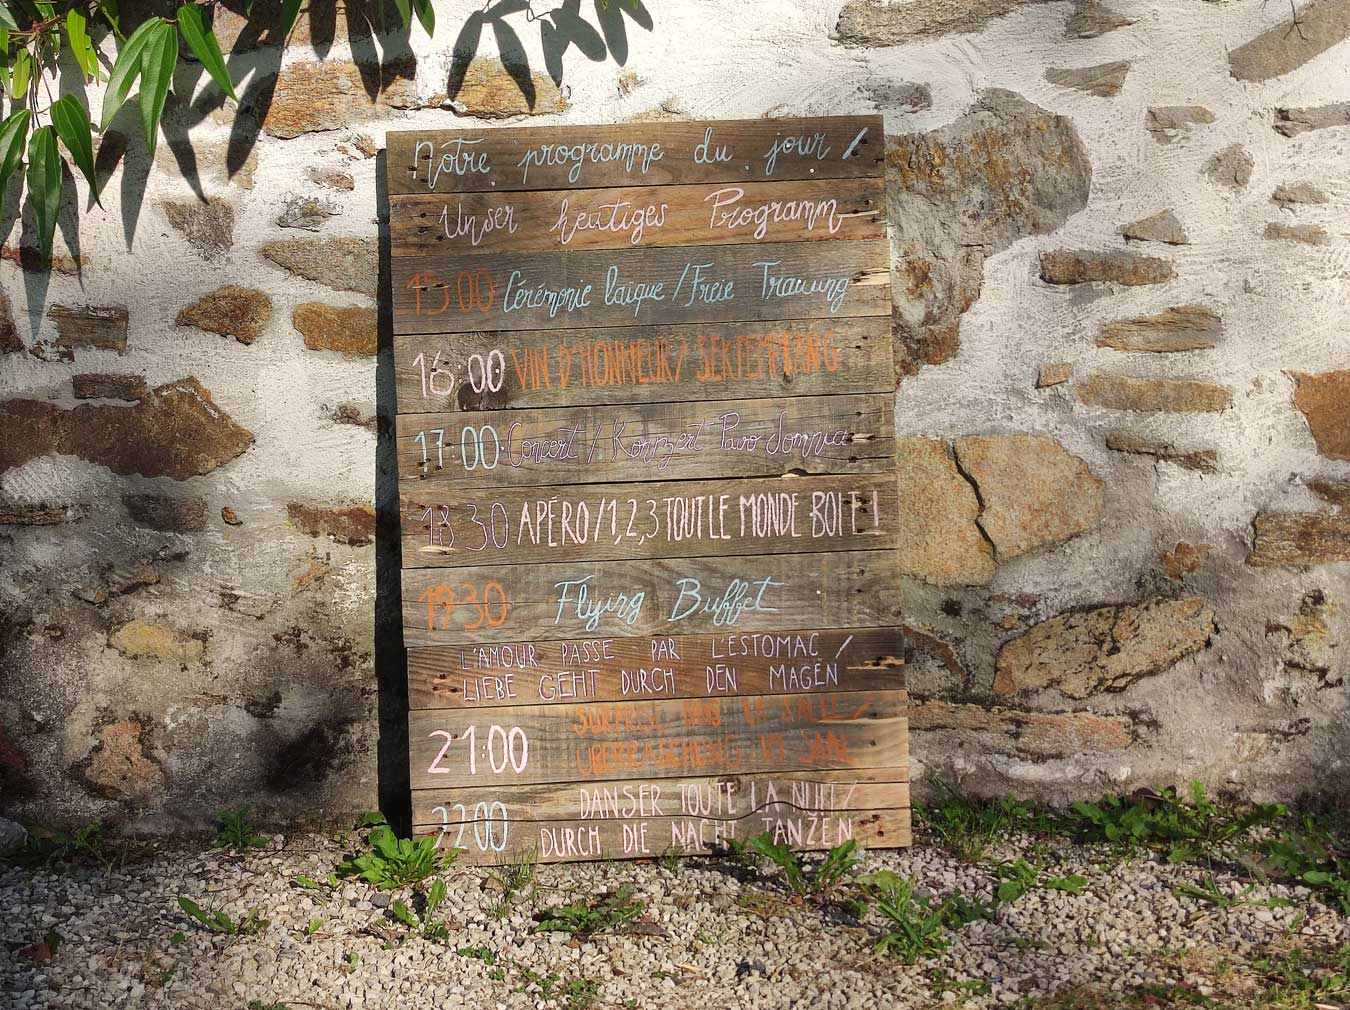 Notre programme du jour /
Unser heutiges Programm
15:00 Cérémonie laïque / Freie Trauung
16:00 VIN D'HONNEUR / SEKTEMPFANG
17:00 Concert / Konzert Pavo Somnia
18:30 APÉRO / 1,2,3 TOUT LE MONDE BOIT !
19:30 Flying Buffet
L'AMOUR PASSE PAR L'ESTOMAC /
LIEBE GEHT DURCH DEN MAGEN
SURPRISE DANS LA SALLE /
21:00 ÜBERRASCHUNG IM SAAL
DANSER TOUTE LA NUIT /
22:00 DURCH DIE NACHT TANZEN